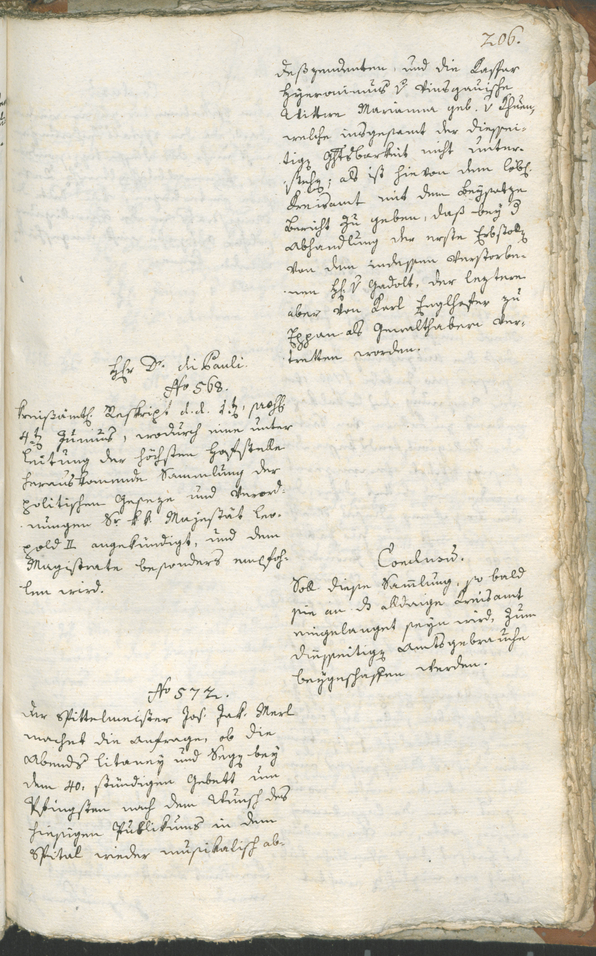 206.
deszendenten, und die Kasper
Hyeronimus v Vinsgauische
Wittwe Marianna geb. v Khuen,
welche insgesamt der diessei-
tig Gtsbarkeit nicht unter-
stehe; als ist hievon dem löbl.
Kreisamt mit dem Beysatze
Bericht zu geben, daß bey d
Abhandlung der erste Erbstoll
von dem indessen verstorbe-
nen H v Gadolt, der leztere
aber von Karl Englhofer zu
Eppan als Gewalthabern ver-
tretten worden.
Hr Dr. di Pauli.
No 568.
Kreisämtl. Reskript d.d. 1t, praes
4t Junius, wodurch eine unter
Leitung der höchsten Hofstelle
herauskomende Sammlung der
politischen Geseze und Verord-
nungen Sr k k Majestät Leo-
pold II angekündigt, und dem
Magistrate besonders empfoh-
len wird.
Conclusum.
Soll diese Sam̅lung, so bald
sie an ds alldaige Kreisamt
eingelanget seyn wird, zum
diesseitigen Amtsgebrauche
beygeschaffen werden.
No 572.
Der Spittelmeister Jos. Jak. Merl
machet die Anfrage, ob die
Abends Litaney und Seg bey
dem 40. stündigen Gebett um
Pfingsten nach dem Wunsch des
hiesigen Publikums in dem
Spital wieder musikalisch ab-